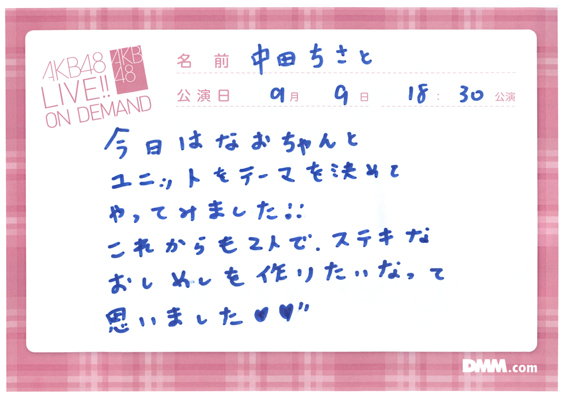 AKB48
LIVE!!
ON DEMAND
AKB
48
名前 中田ちさと
公演日 9月 9日 18:30公演
今日はなおちゃんと
ユニットをテーマを決めて
やってみました!!
これからも2人で、ステキな
おしめしを作りたいなって
思いました♥♥"
DMM.com